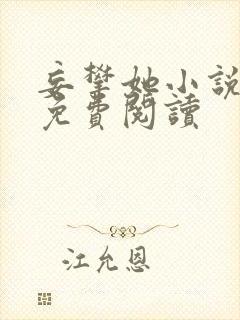 妄攀她小說
免費閱讀
江允恩